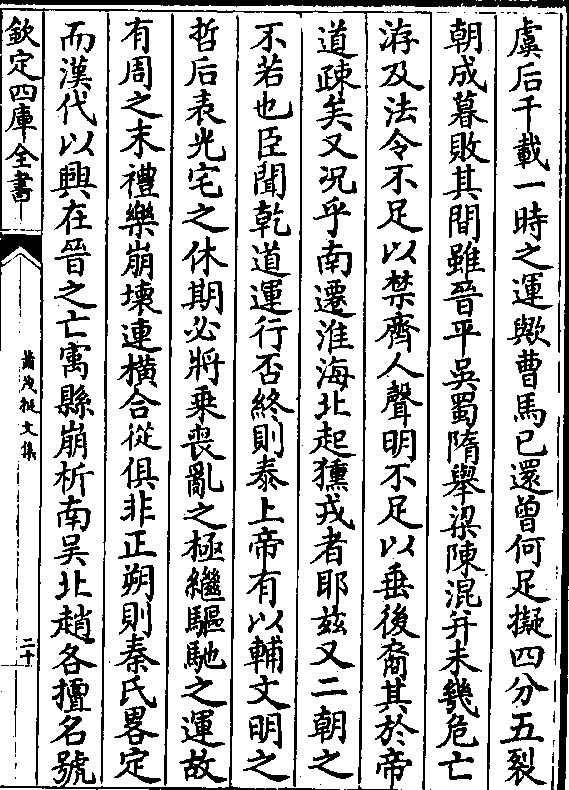 虞后千載一時之運歟曹馬已還曾何足擬四分五裂
朝成暮敗其間雖晉平吳蜀隋舉梁陳混并未幾危亡
洊及法令不足以禁齊人聲明不足以垂後裔其於帝
道疎矣又况乎南遷淮海北起獯戎者耶兹又二朝之
不若也臣聞乾道運行否終則泰上帝有以輔文明之
哲后表光宅之休期必將乗喪亂之極繼驅馳之運故
有周之末禮樂崩壊連横合從俱非正朔則秦氏畧定
而漢代以興在晉之亡寓縣崩析南吳北趙各擅名號
欽定四庫全書
蕭茂挺文集
二十